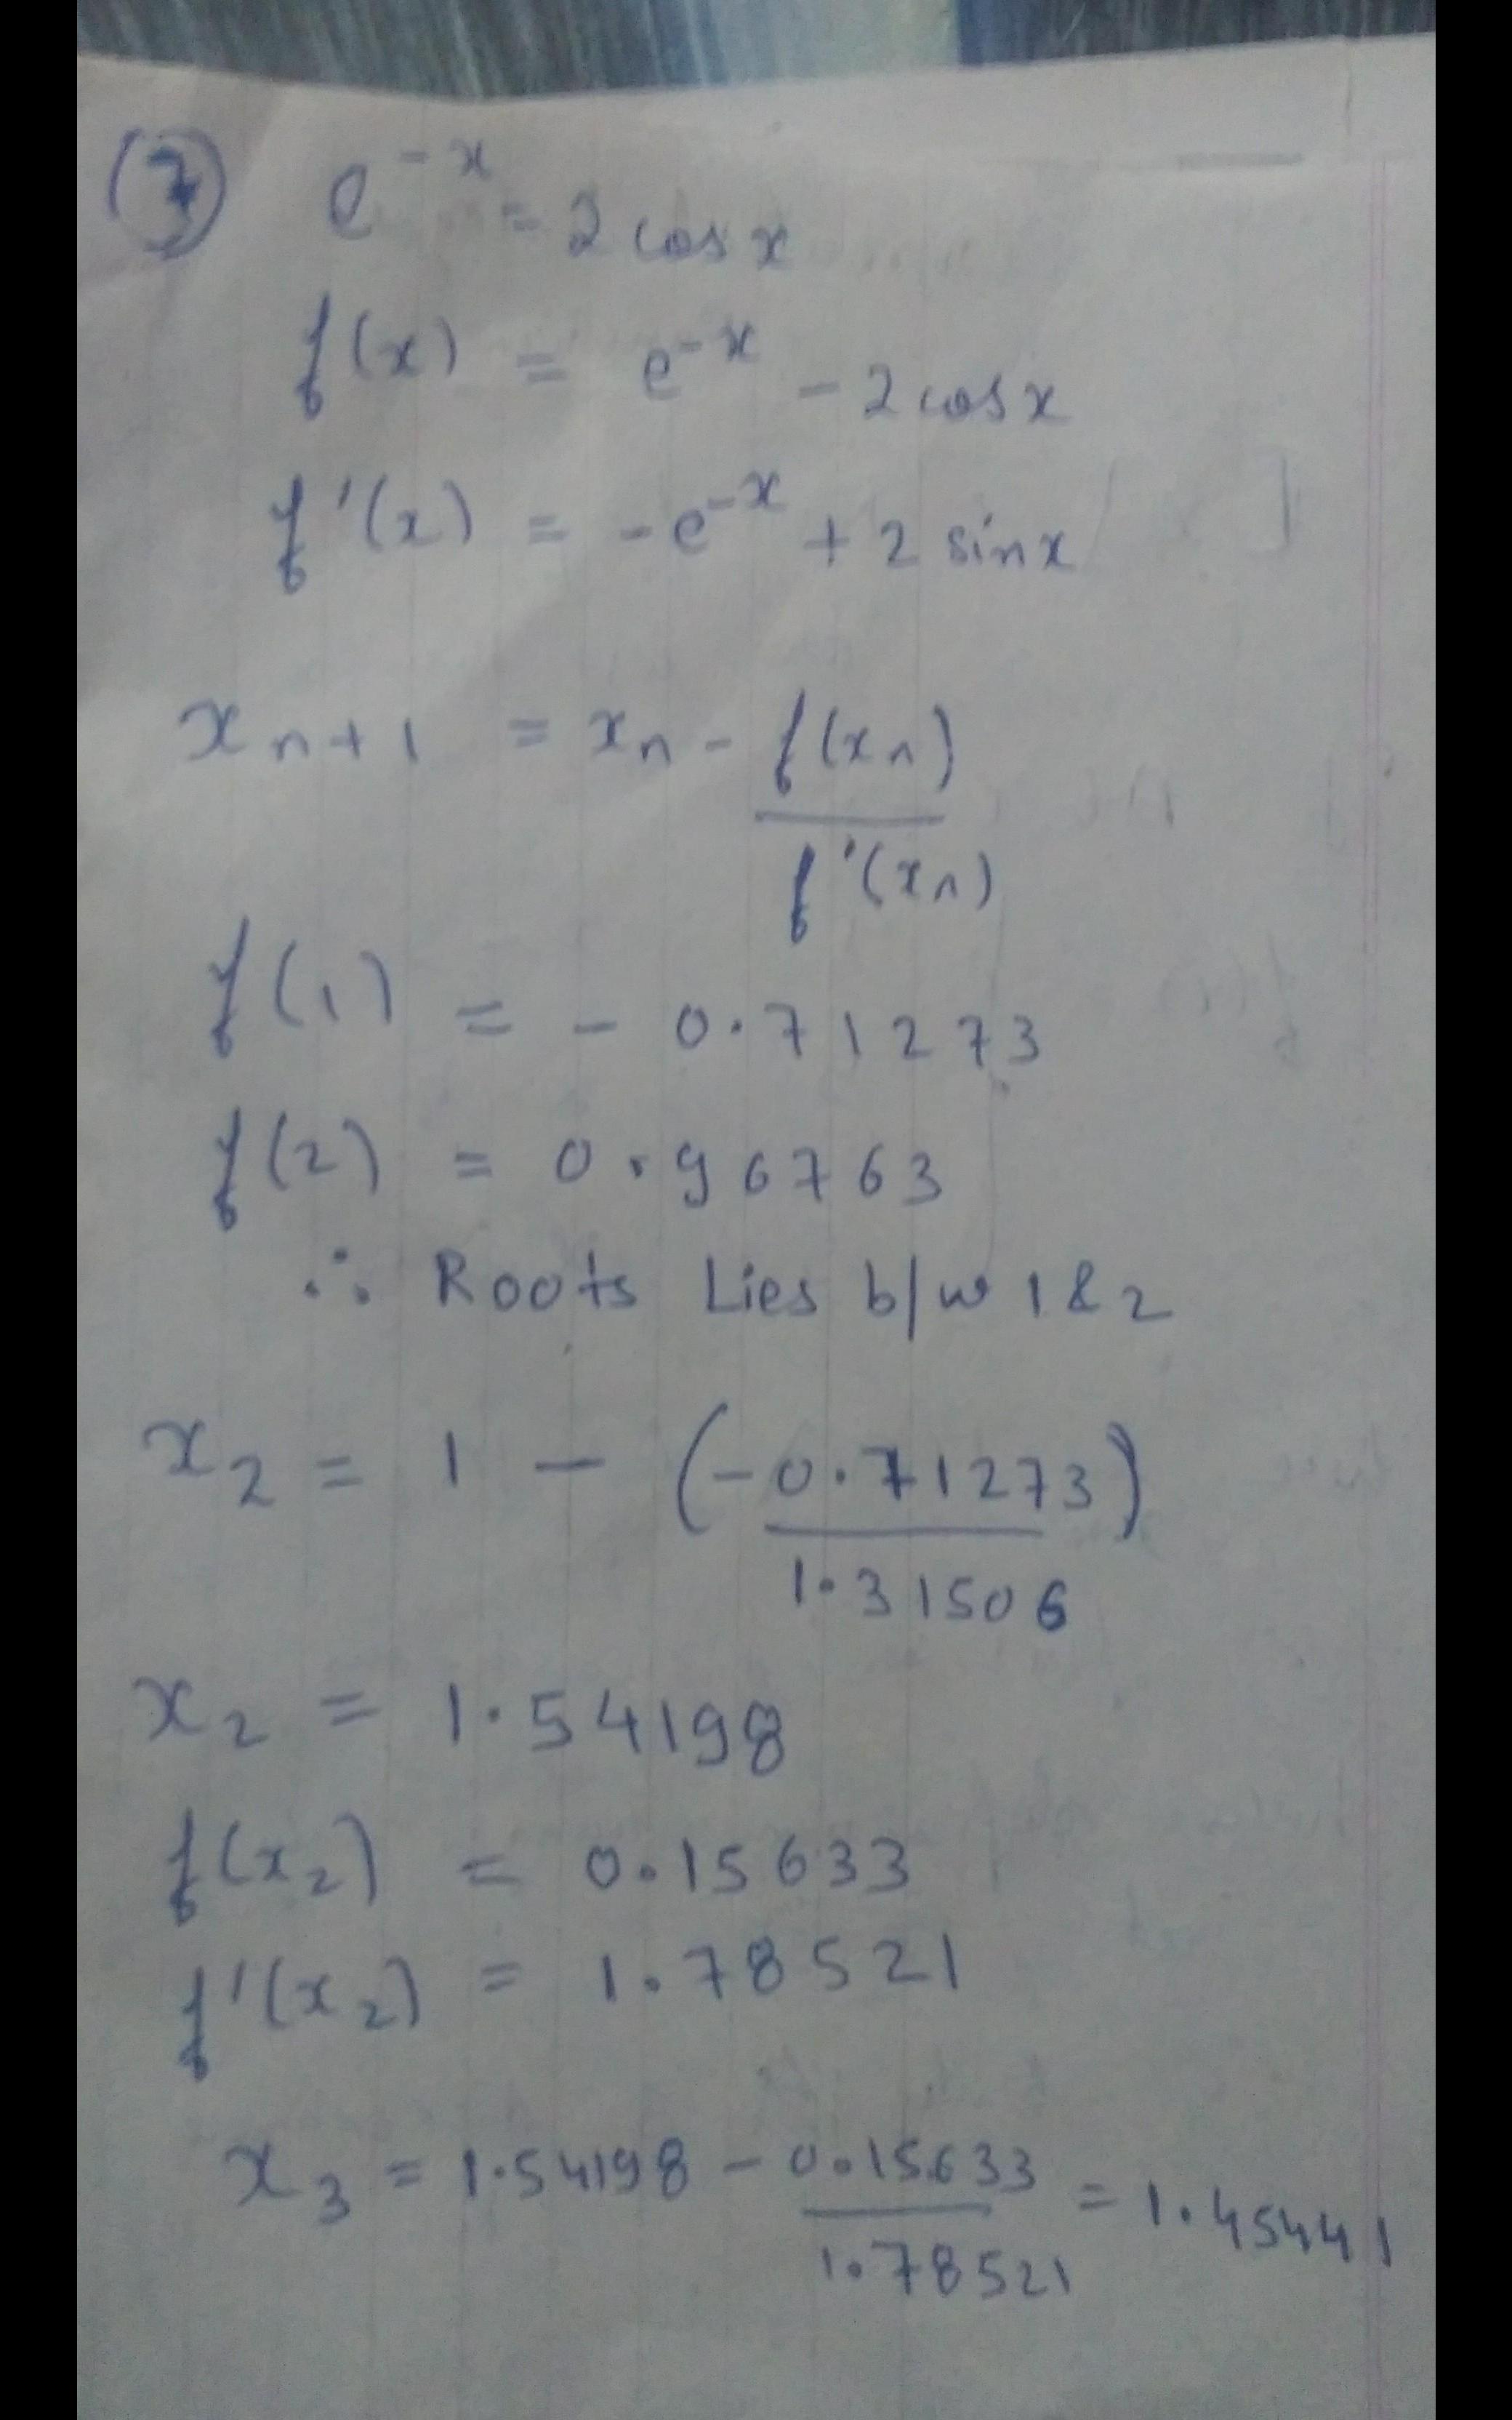 (7) e^{-x} = 2 cos x
f(x) = e^{-x} - 2 cos x
f'(x) = -e^{-x} + 2 sin x
x_{n+1} = x_n - f(x_n) / f'(x_n)
f(1) = - 0.71273
f(2) = 0.96763
∴ Roots Lies b/w 1 & 2
x_2 = 1 - (-0.71273) / 1.31506
x_2 = 1.54198
f(x_2) = 0.15633
f'(x_2) = 1.78521
x_3 = 1.54198 - 0.15633 / 1.78521 = 1.45441